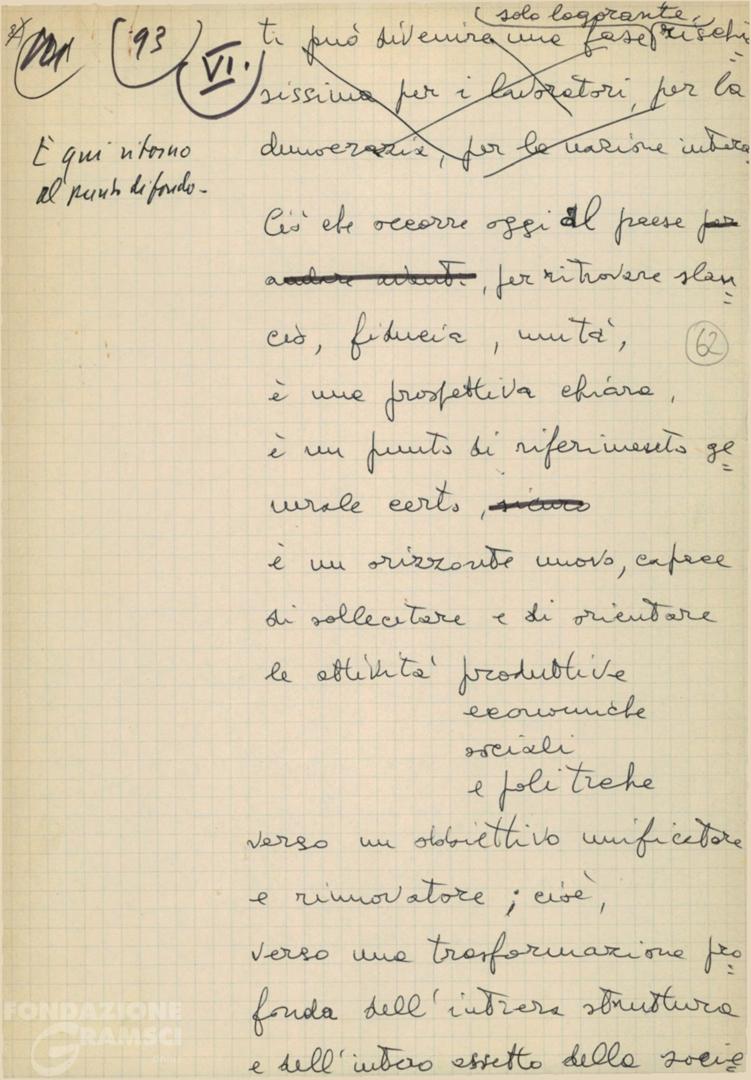 93
VI.
solo logorante,
ti può divenire una fase rischio
sissima per i lavoratori, per la
democrazia, per la nazione intera.
È qui ritorno
al punto di fondo.
Ciò che occorre oggi al paese per
andare avanti, per ritrovare slan
cio, fiducia, unità,
62
è una prospettiva chiara,
è un punto di riferimento ge
nerale certo, sicuro
è un orizzonte nuovo, capace
di sollecitare e di orientare
le attività produttive
economiche
sociali
e politiche
verso un obbiettivo unificatore
e rinnovatore; cioè,
verso una trasformazione pro
fonda dell'intera struttura
e dell'intero assetto della socie
FONDAZIONE
GRAMSCI